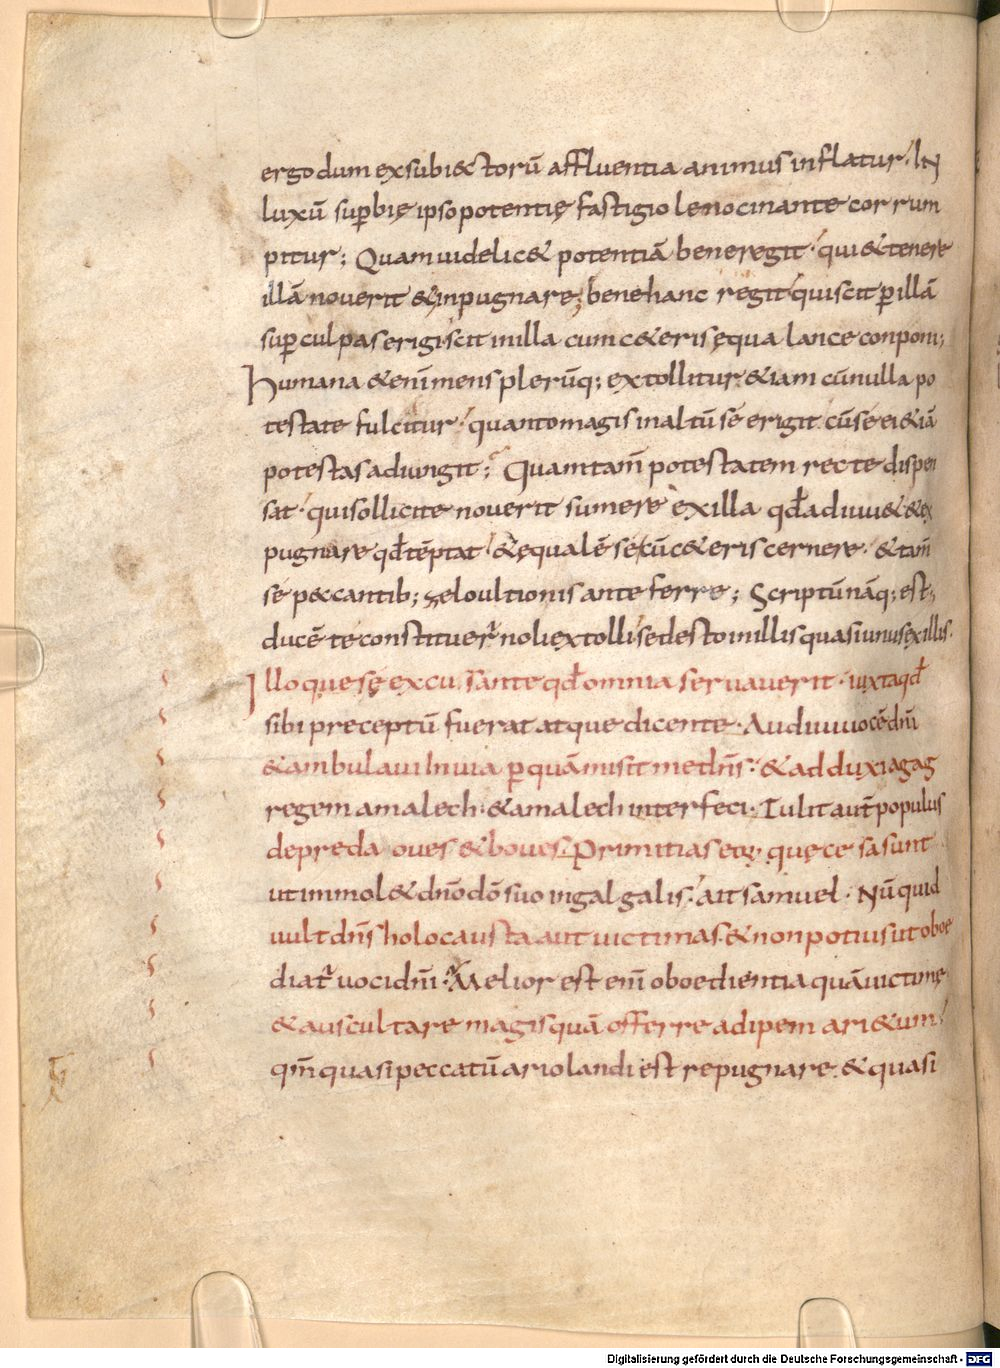 ergo dum exsubi&torū affluentia animus inflatur·IN
luxū sup̄bię ipso potentię fastigio lenocinante corrum
pitur; Quam uidelic& potentiā bene regit· qui & tenere
illā nouerit & inpugnare; bene hanc regit qui scit p̄ illā
sup̄ culpas erigi scit in illa cum c&eris ęqua lance conponi;
Humana &enī mens plerūq; extollitur· &iam cū nulla po
testate fulcitur· quanto magis in altū se erigit cū se ei &iā
potestas adiungit; Quam tam̄ potestatem recte dispen
sat· qui sollicite nouerit sumere ex illa qđ adiuu& & ex
pugnare qđ tēptat· & ęqualē se cū c&eris cernere· & tam̄
se peccantib; zelo ultionis anteferre; Scriptū nāq; est;
ducē te constituer̄ noli extolli sed esto in illis quasi unus ex illis·
Illoque sę excusante qđ omnia seruauerit· iuxta qđ
sibi preceptū fuerat atque dicente· Audiui uocē dn̄i
& ambulaui In uia p̄ quā misit me dn̄s· & adduxi agag
regem amalech· & amalech interfeci· Tulit aut̄ populus
de preda oues & boues· Primitias eoꝝ quę cesa sunt
ut immol& dn̄o dō suo in galgalis· ait samuel· Nūquid
uult dn̄s holocausta aut uictimas· & non potius ut oboe
diat̄ uoci dn̄i· Melior est enī oboedientia quā uictimę
& auscultare magis quā offerre adipem ari&um·
qm̄ quasi peccatū ariolandi est repugnare· & quasi
Digitalisierung gefördert durch die Deutsche Forschungsgemeinschaft - DFG